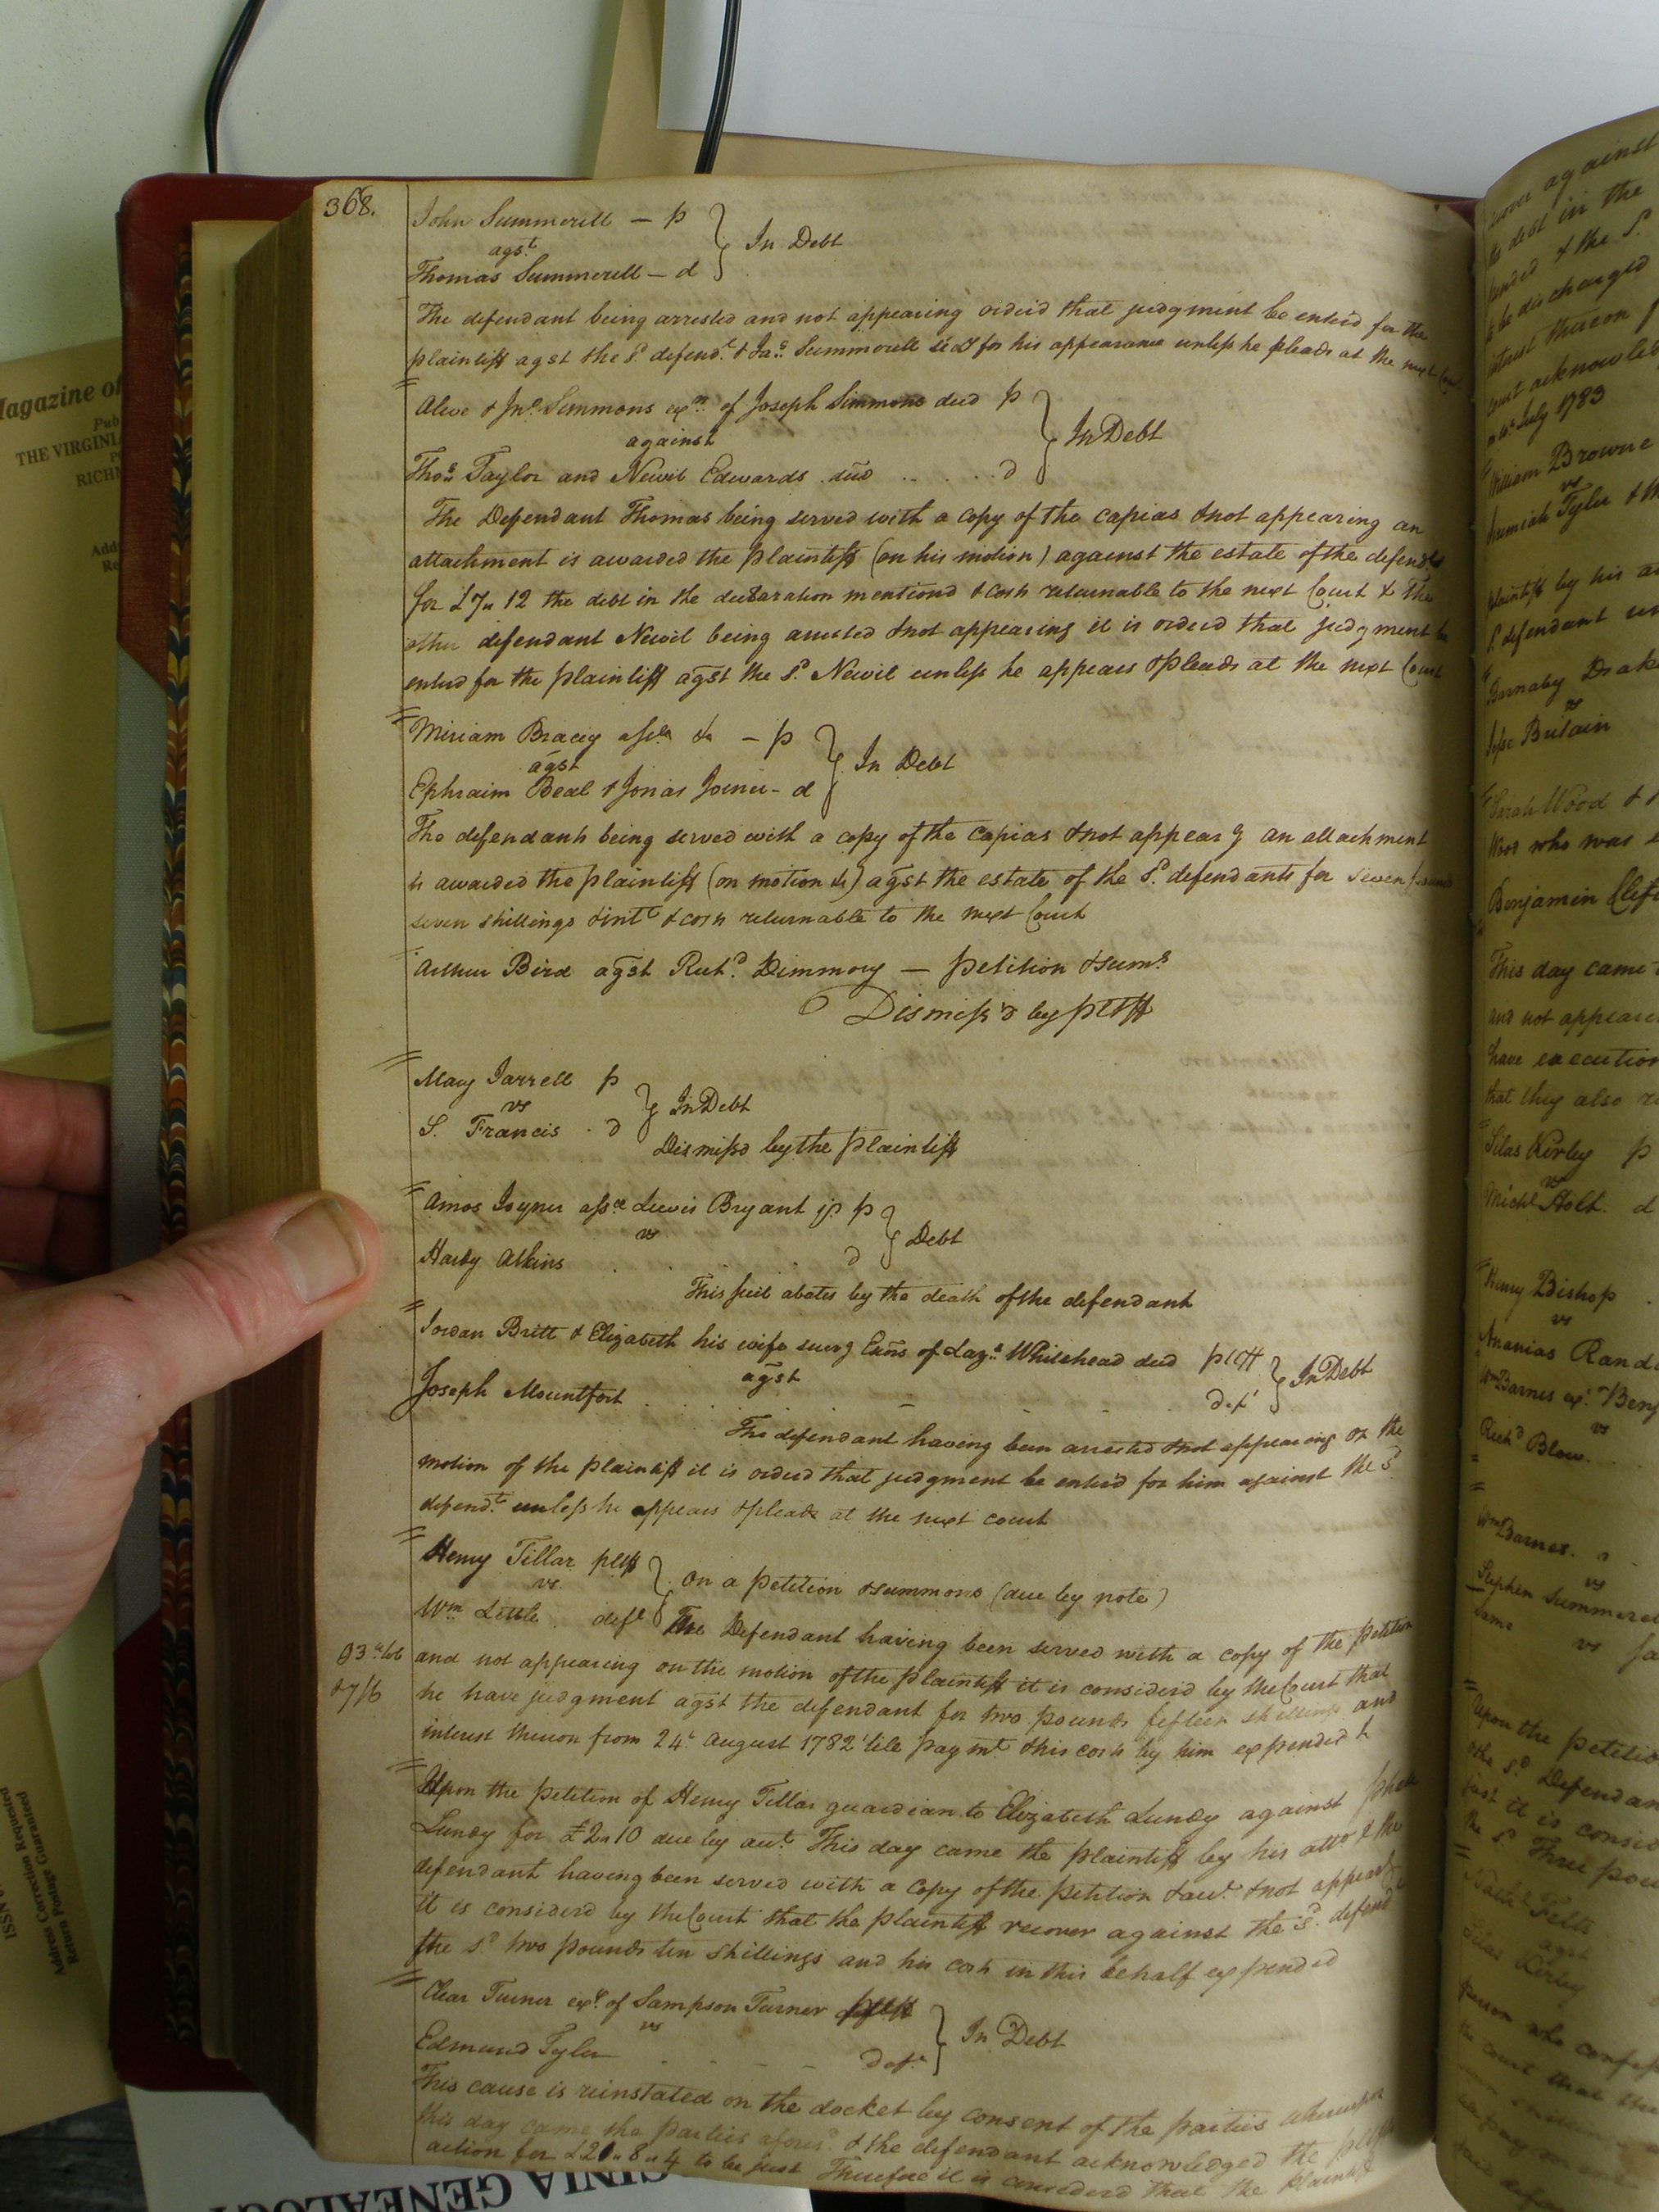 368.
John Summerell — p
agst
Thomas Summerell — d
In Debt
The defendant being arrested and not appearing orderd that judgment be enterd for the
plaintiff agst the sd. defendt. & Jas. Summerell secy for his appearance unless he pleads at the next Court
Alice & Jno. Simmons exrs. of Joseph Simmons decd p
against
Thos. Taylor and Newit Edwards decd . . . . . d
In Debt
The Defendant Thomas being served with a copy of the capias & not appearing an
attachment is awarded the plaintiff (on his motion) against the estate of the defendt
for £7 " 12 the debt in the declaration mentiond & costs returnable to the next Court & The
other defendant Newit being arrested & not appearing it is orderd that judgment be
enterd for the plaintiff agst the sd. Newit unless he appears & pleads at the next Court
Miriam Bracey asse &c — p
agst
Ephraim Beal & Jonas Joiner - d
In Debt
The defendants being served with a copy of the capias & not appearg an attachment
is awarded the plaintiff (on motion &c) agst the estate of the sd. defendants for seven pounds
seven shillings & intt & costs returnable to the next Court
Arthur Bird agst Richd. Dimmory — petition & sums
Dismiss'd by pltff
Mary Jarrell p
vs
S. Francis . d
In Debt
Dismissd by the plaintiff
Amos Joyner asse Lewis Bryant jr p
vs
Hardy Atkins . . . d
Debt
This suit abates by the death of the defendant
Jordan Britt & Elizabeth his wife survg Exors of Lazs. Whitehead decd pltff
agst
Joseph Mountfort . . . . . . deft
In Debt
The defendant having been arrested & not appearing on the
motion of the plaintiff it is orderd that judgment be enterd for him against the sd
defendt. unless he appears & pleads at the next court
Henry Tillar pltff
vs.
Wm Little . deft
on a petition & summons (due by note)
The Defendant having been served with a copy of the petition
and not appearing on the motion of the plaintiff it is considerd by the Court that
he have judgment agst the defendant for two pounds fifteen shillings and
interest thereon from 24th August 1782 'till paymt. & his costs by him expended &
& 7/6
Upon the petition of Henry Tillar guardian to Elizabeth Lundy against
Lundy for £2 " 10 due by acct. This day came the plaintiff by his atto & the
defendant having been served with a copy of the petition & acct. & not appearg
it is considerd by the Court that the plaintiff recover against the sd. defendt
the sd two pounds ten shillings and his costs in this behalf expended
Clear Turner exr. of Sampson Turner pltff
vs
Edmund Tyler - - - - deft.
In Debt
This cause is reinstated on the docket by consent of the parties whereupon
this day came the parties aforesd. & the defendant acknowledged the pltffs
action for £20 " 8 " 4 to be just Therefore it is considerd that the plaintiff
against
the debt in the
& the sd.
to be discharged
interest thereon
in July 1783
William Browne
vs
Jeremiah Tyler &
plaintiff by his
sd. defendant
Barnaby Drake
vs
Jesse Britain
Sarah Wood &
Wood who was
Benjamin Clif
This day came
and not appear
have execution
that they also
Silas Kirby p
vs
Michl Holt. d
Henry Bishop .
vs
Ananias Rand
Wm Barnes exr. Benj
vs
Richd Blow.
Wm Barnes.
vs
Stephen Summerel
Same vs Ja
Upon the petitio
& the sd. Defendan
just it is consid
the sd Three pou
Nathl Felts
agst
Silas Kirby
person who confess
the court that the
Magazine of
Pub
THE VIRGINIA
RICHM
Add
Re
ISSN
Address Correction Requested
Return Postage Guaranteed
GINIA GENEALOG